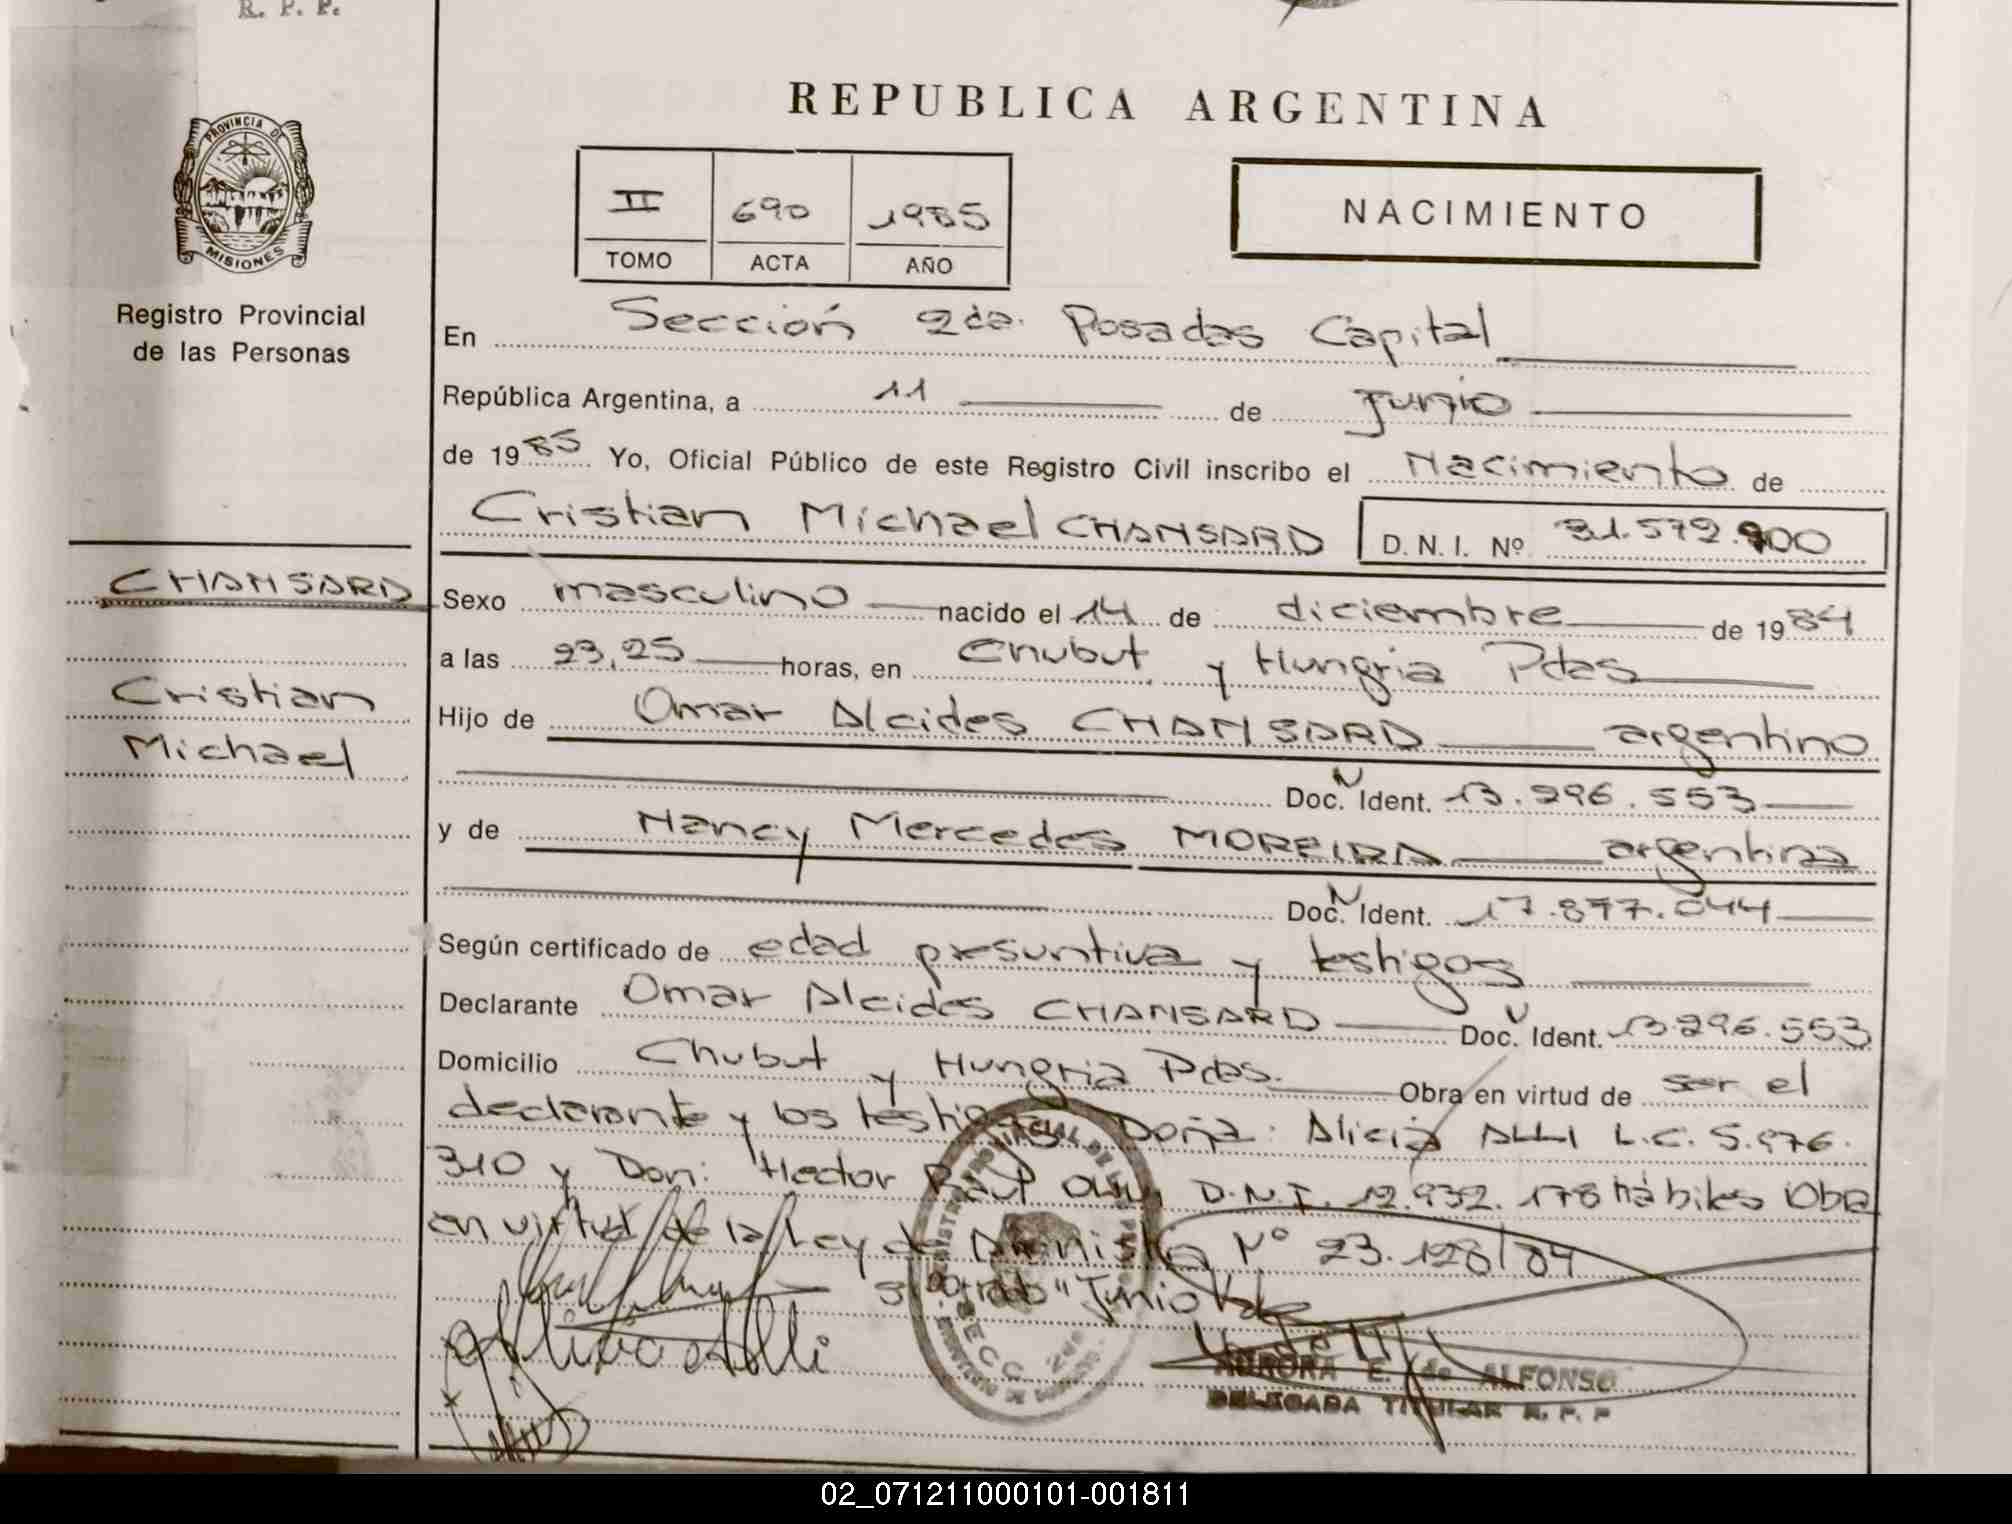 R. P. P.
PROVINCIA DE
MISIONES
Registro Provincial
de las Personas
REPUBLICA ARGENTINA
II 690 1985
TOMO ACTA AÑO
NACIMIENTO
En Sección 2da. Posadas Capital
República Argentina, a 11 de junio
de 1985 Yo, Oficial Público de este Registro Civil inscribo el Nacimiento de
Cristian Michael CHAMSARD D. N. I. Nº 31.572.900
CHAMSARD
Cristian
Michael
Sexo masculino nacido el 14 de diciembre de 1984
a las 23,25 horas, en Chubut y Hungria Pdas
Hijo de Omar Alcides CHAMSARD argentino
Doc. Ident. 13.296.553
y de Nancy Mercedes MOREIRA argentina
Doc. Ident. 17.877.044
Según certificado de edad presuntiva y testigos
Declarante Omar Alcides CHAMSARD Doc. Ident. 13.296.553
Domicilio Chubut y Hungria Pdas. Obra en virtud de ser el
declarante y los testigos Doña: Alicia ALLI L.C. 5.976.
310 y Don: Hector Raul D.N.I. 12.932.178 hábiles Obra
en virtud de la Ley de Amnistia Nº 23.128/84
"Junio" Vale
Alicia Alli
AURORA E. de ALFONSO
DELEGADA TITULAR R. P. P
02_071211000101-001811